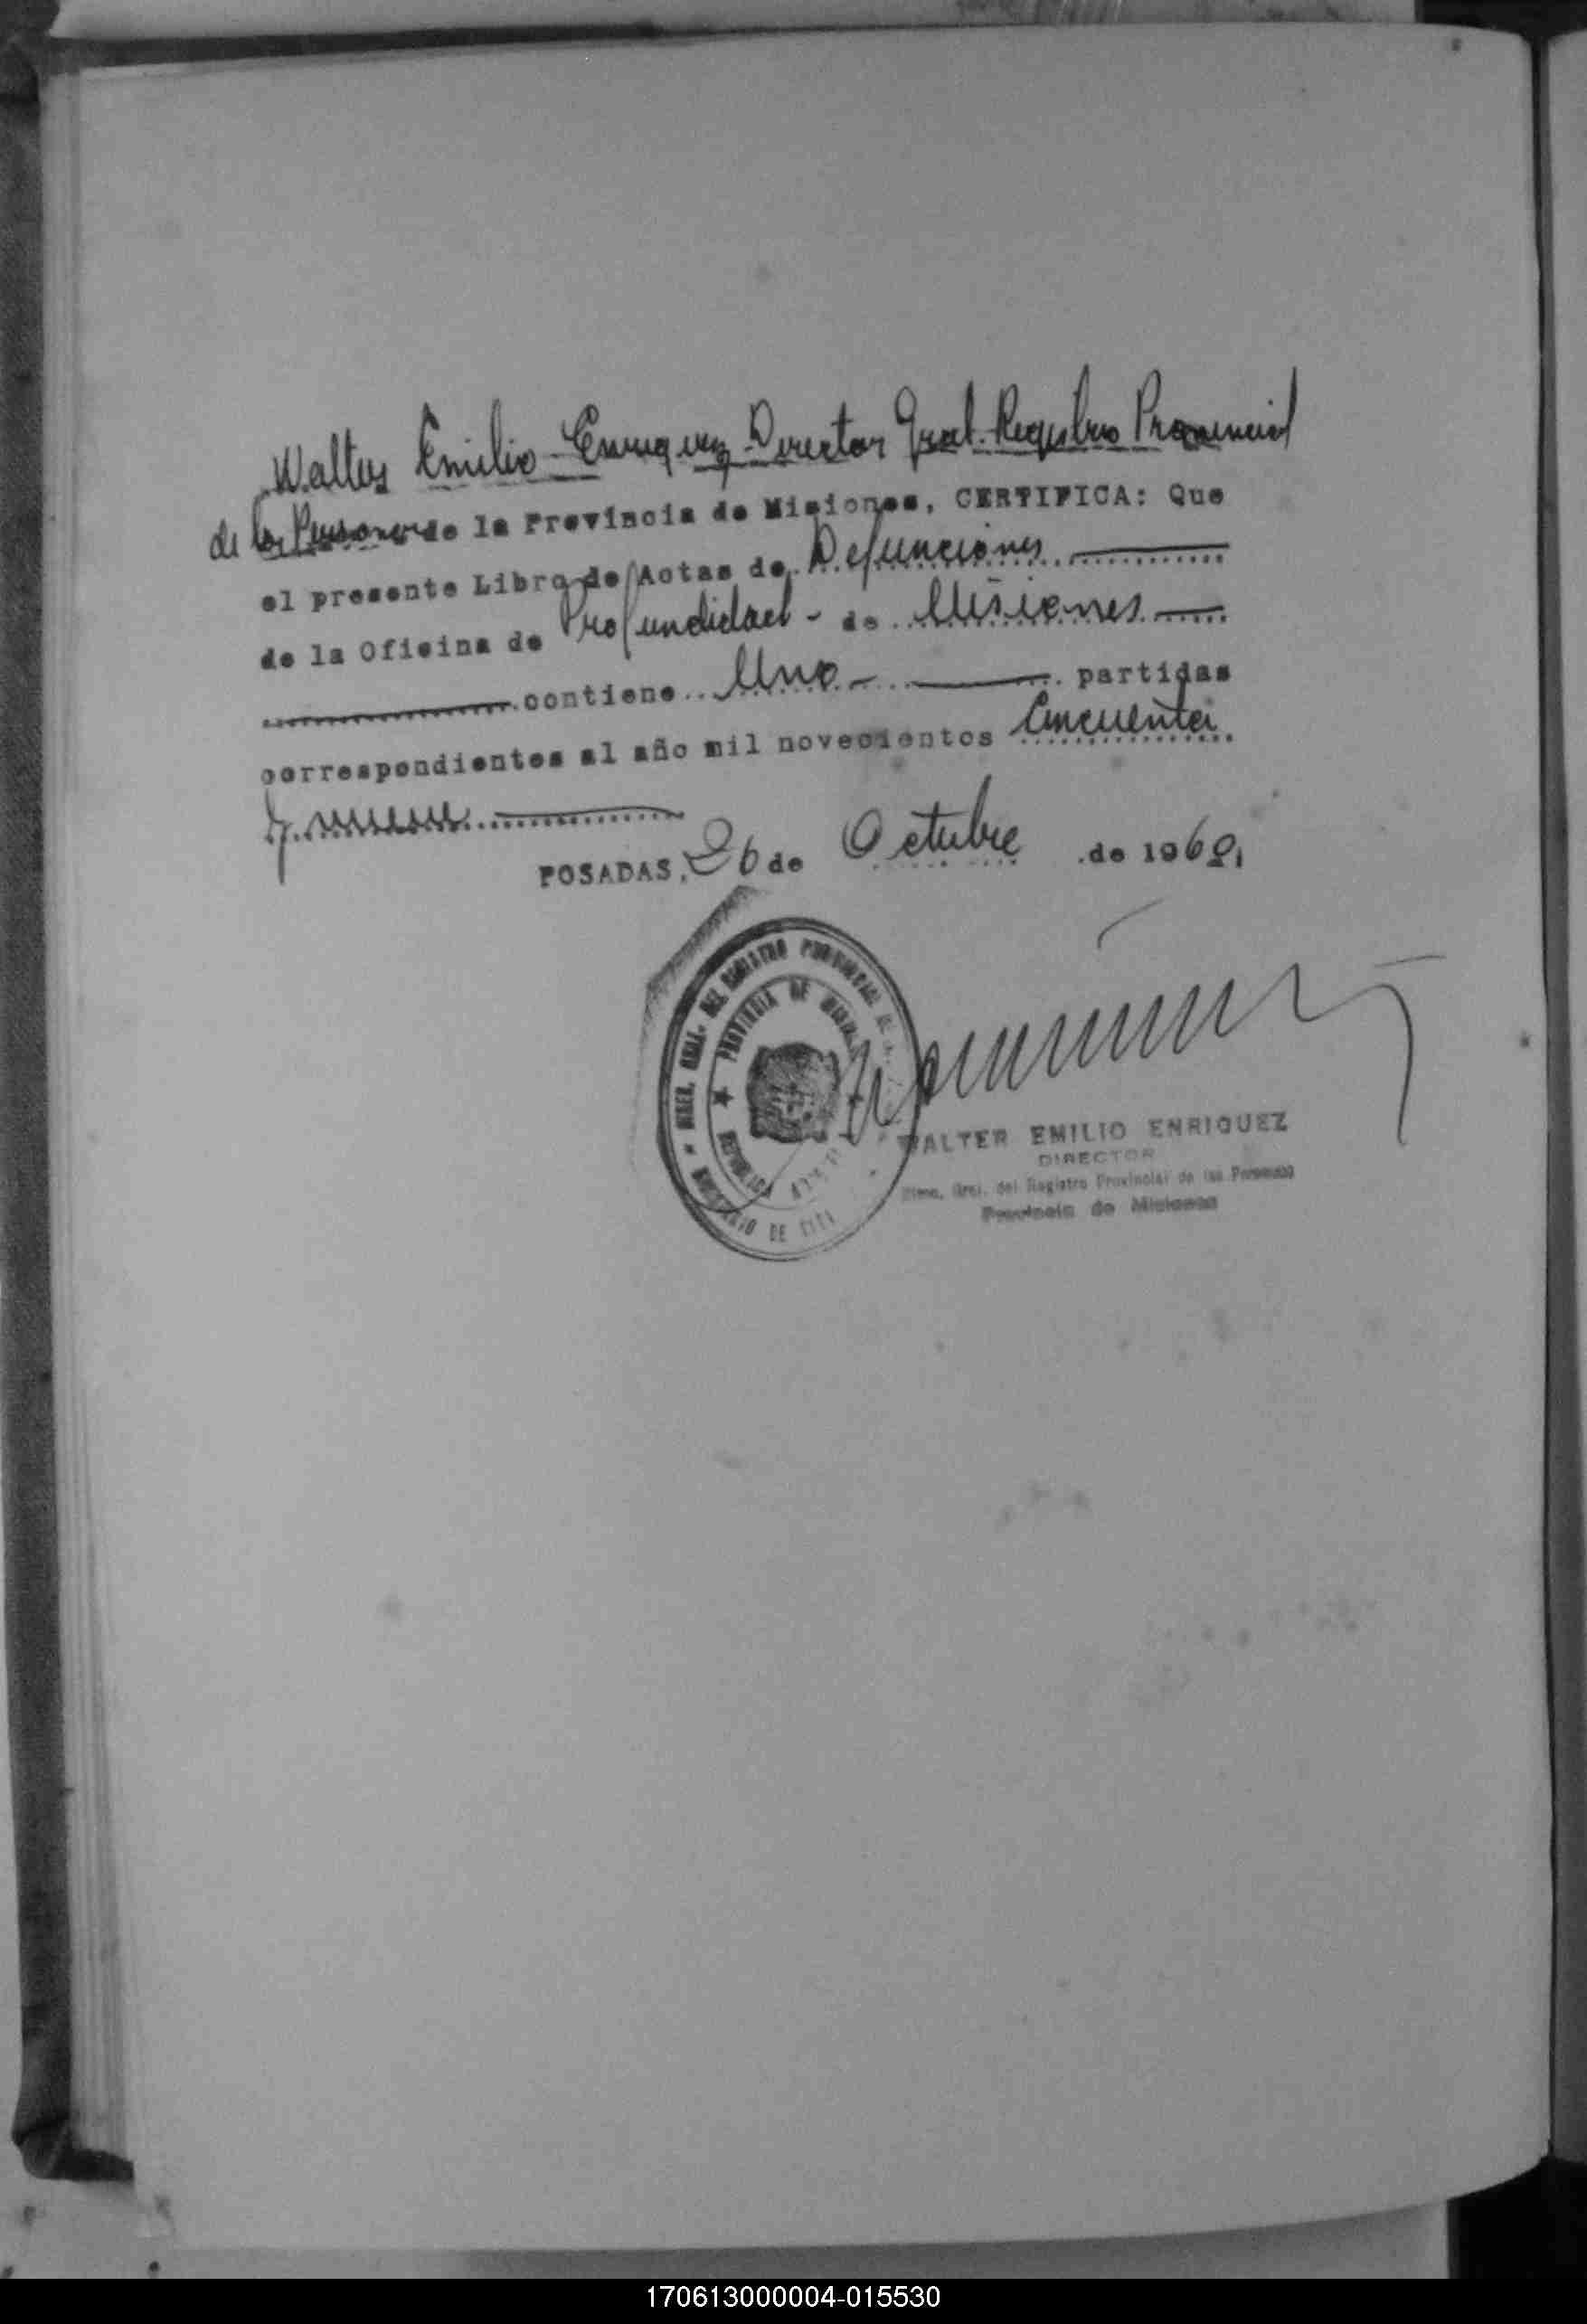 Walter Emilio Enriquez Director Gral. Registro Provincial
de las Personas de la Provincia de Misiones, CERTIFICA: Que
el presente Libro de Actas de Defunciones
de la Oficina de Profundidad - de Misiones
contiene Uno - partidas
correspondientes al año mil novecientos Cincuenta
y nueve
POSADAS, 26 de Octubre de 196
DEL REGISTRO PROVINCIAL
PROVINCIA DE MISIONES
REPUBLICA
MINISTERIO DE
WALTER EMILIO ENRIQUEZ
DIRECTOR
Gral. del Registro Provincial de las Personas
Provincia de Misiones
170613000004-015530